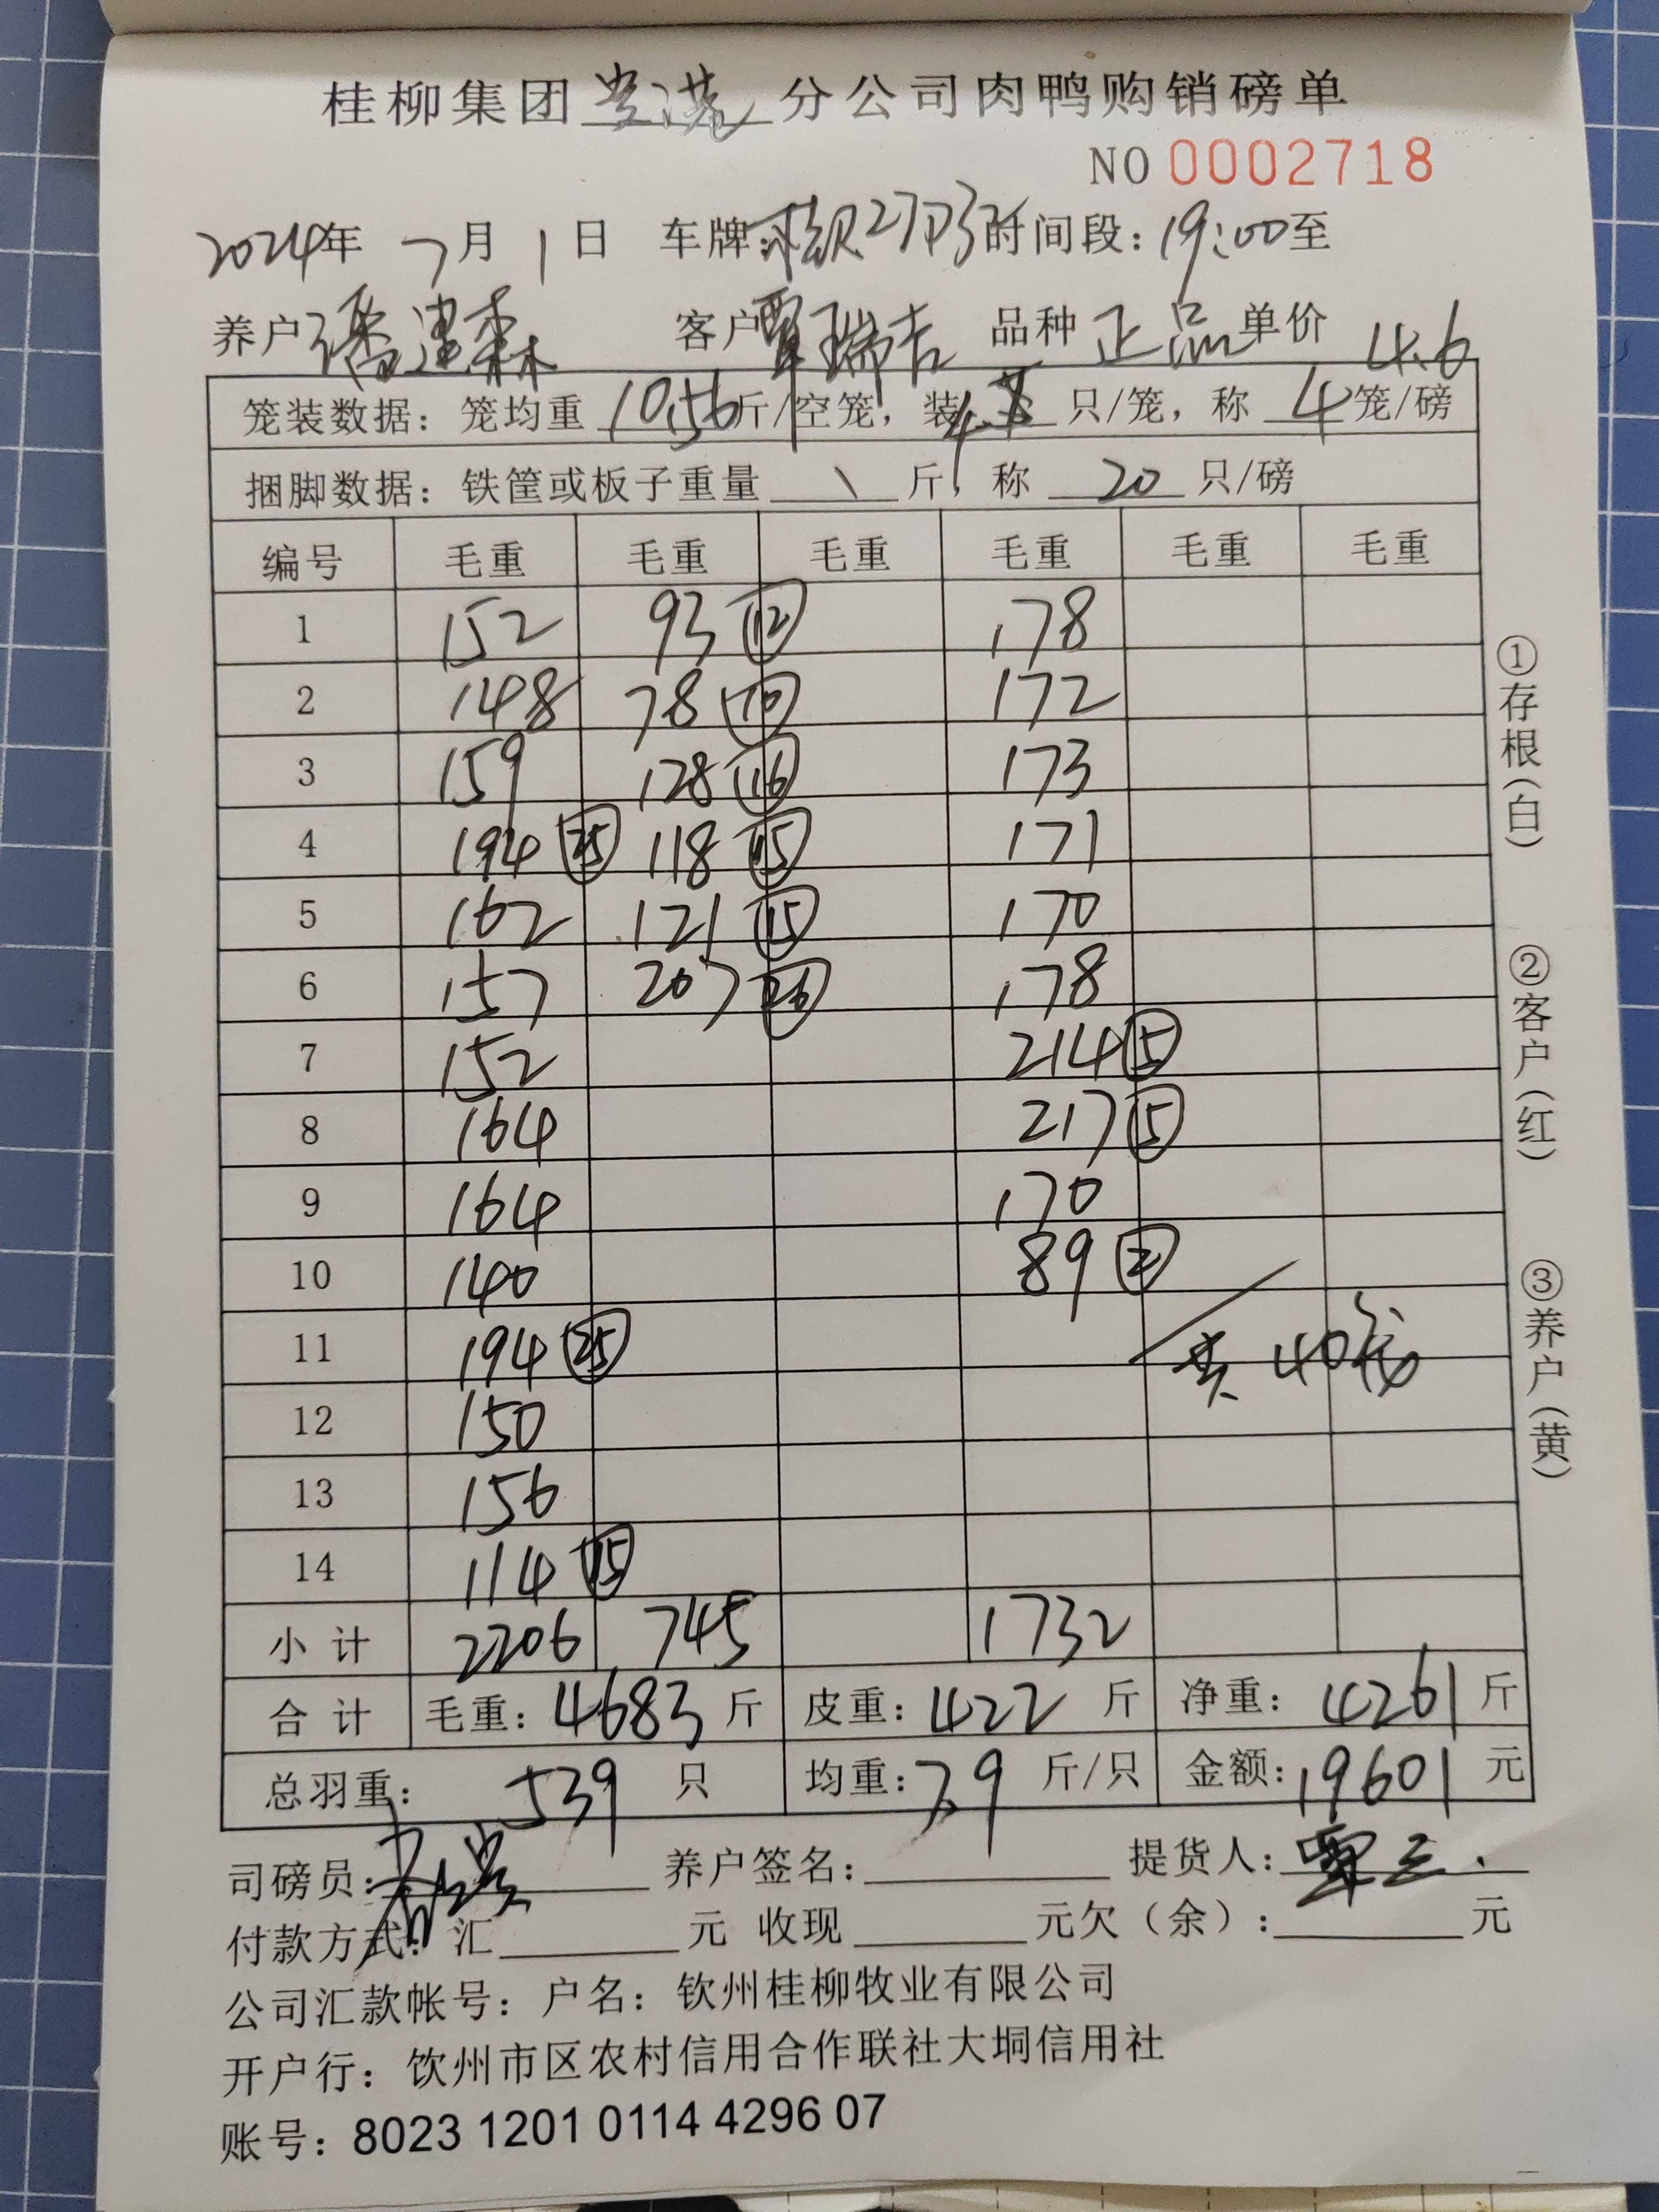 桂柳集团贵港分公司肉鸭购销磅单
NO 0002718
2024年 7月 1日 车牌: 时间段：19:00至
养户 潘建森 客户 覃瑞吉 品种 正品 单价 4.6
笼装数据：笼均重 10.56 斤/空笼，装 只/笼，称 4 笼/磅
捆脚数据：铁筐或板子重量 \ 斤，称 20 只/磅
编号 毛重 毛重 毛重 毛重 毛重 毛重
1 152 93 ⑫ 178
2 148 78 ⑩ 172
3 159 128 ⑯ 173
4 194 ㉕ 118 ⑮ 171
5 162 121 ⑮ 170
6 157 207 ㉖ 178
7 152 214 ⑤
8 164 217 ⑤
9 164 170
10 140 89 ②
11 194 ㉕ 共 40笼
12 150
13 156
14 114 ⑮
小计 2206 745 1732
合计 毛重：4683 斤 皮重：422 斤 净重：4261 斤
总羽重： 539 只 均重：7.9 斤/只 金额：19601 元
司磅员： 养户签名： 提货人：覃三
付款方式：汇 元 收现 元欠（余）： 元
公司汇款帐号：户名：钦州桂柳牧业有限公司
开户行：饮州市区农村信用合作联社大垌信用社
账号：8023 1201 0114 4296 07
①存根（白）
②客户（红）
③养户（黄）